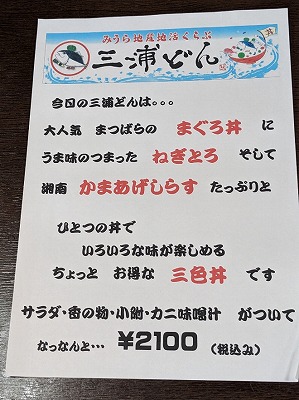 みうら地産地活くらぶ
三浦どん
今日の三浦どんは。。。
大人気 まつばらの まぐろ丼 に
うま味のつまった ねぎとろ そして
湘南 かまあげしらす たっぷりと
ひとつの丼で
いろいろな味が楽しめる
ちょっと お得な 三色丼 です
サラダ・香の物・小鉢・カニ味噌汁 がついて
なっなんと… ¥2100 (税込み)